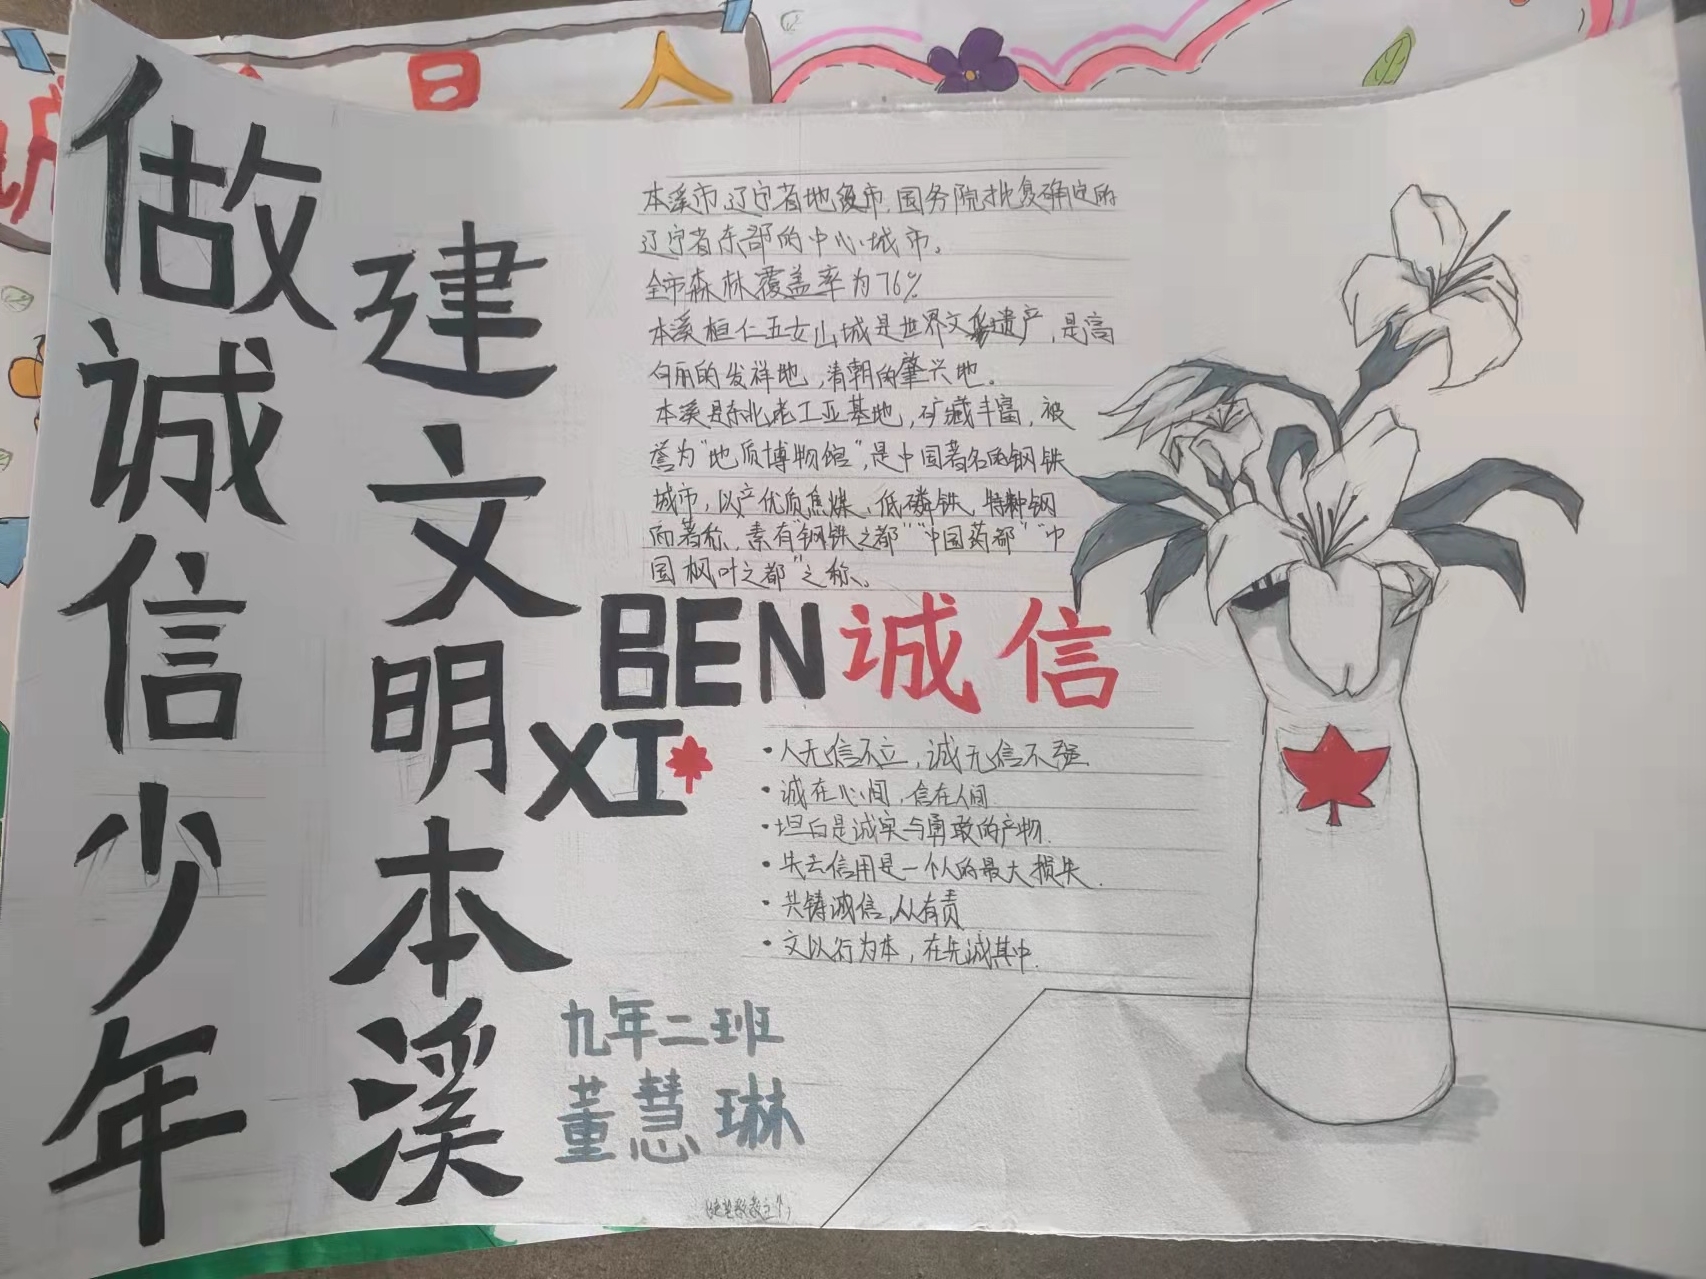 做诚信少年
建文明本溪
本溪市,辽宁省地级市,国务院批复确定的
辽宁省东部的中心城市。
全市森林覆盖率为76%
本溪桓仁五女山城是世界文化遗产,是高
句丽的发祥地,清朝的肇兴地。
本溪是东北老工业基地,矿藏丰富,被
誉为“地质博物馆”,是中国著名的钢铁
城市,以产优质焦煤、低磷铁、特种钢
而著称,素有“钢铁之都”“中国药都”“中
国枫叶之都”之称。
BEN诚信
XI
·人无信不立,诚无信不强
·诚在心间,信在人间
·坦白是诚实与勇敢的产物.
·失去信用是一个人的最大损失.
·共铸诚信,从有责
·文以行为本,在先诚其中.
九年二班
董慧琳